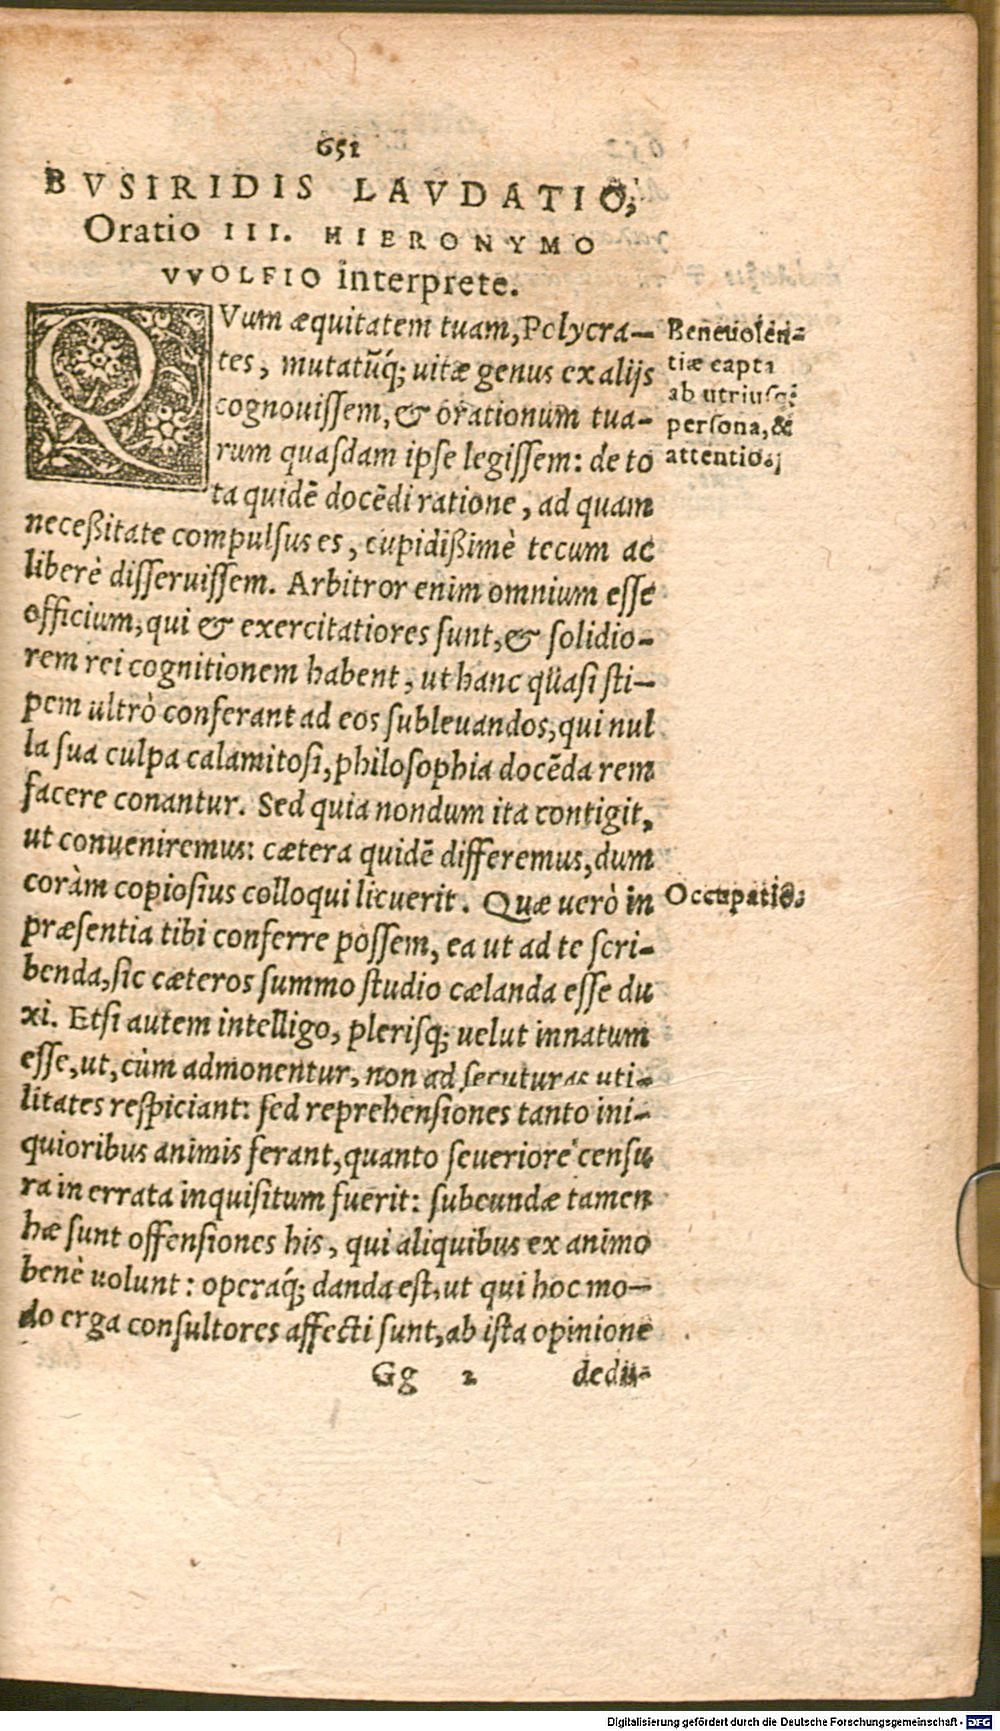 651
BVSIRIDIS LAVDATIO,
Oratio III. HIERONYMO
VVOLFIO interprete.
QVum æquitatem tuam, Polycra-
tes, mutatũq́; uitæ genus ex alijs
cognouissem, & orationum tua-
rum quasdam ipse legissem: de to
ta quidẽ docẽdi ratione, ad quam
neceßitate compulsus es, cupidißimè tecum ac
liberè disseruissem. Arbitror enim omnium esse
officium, qui & exercitatiores sunt, & solidio-
rem rei cognitionem habent, ut hanc quasi sti-
pem ultrò conferant ad eos subleuandos, qui nul
la sua culpa calamitosi, philosophia docẽda rem
facere conantur. Sed quia nondum ita contigit,
ut conueniremus: cætera quidẽ differemus, dum
coràm copiosius colloqui licuerit. Quæ uerò in
præsentia tibi conferre possem, ea ut ad te scri-
benda, sic cæteros summo studio cælanda esse du
xi. Etsi autem intelligo, plerisq; uelut innatum
esse, ut, cùm admonentur, non ad secuturas uti-
litates respiciant: sed reprehensiones tanto ini-
quioribus animis ferant, quanto seueriore censu
ra in errata inquisitum fuerit: subeundæ tamen
hæ sunt offensiones his, qui aliquibus ex animo
benè uolunt: operaq́; danda est, ut qui hoc mo-
do erga consultores affecti sunt, ab ista opinione
Gg 2 dedu-
Beneuolen-
tiæ capta
ab utriusq;
persona, &
attentio.
Occupatio.
Digitalisierung gefördert durch die Deutsche Forschungsgemeinschaft - DFG